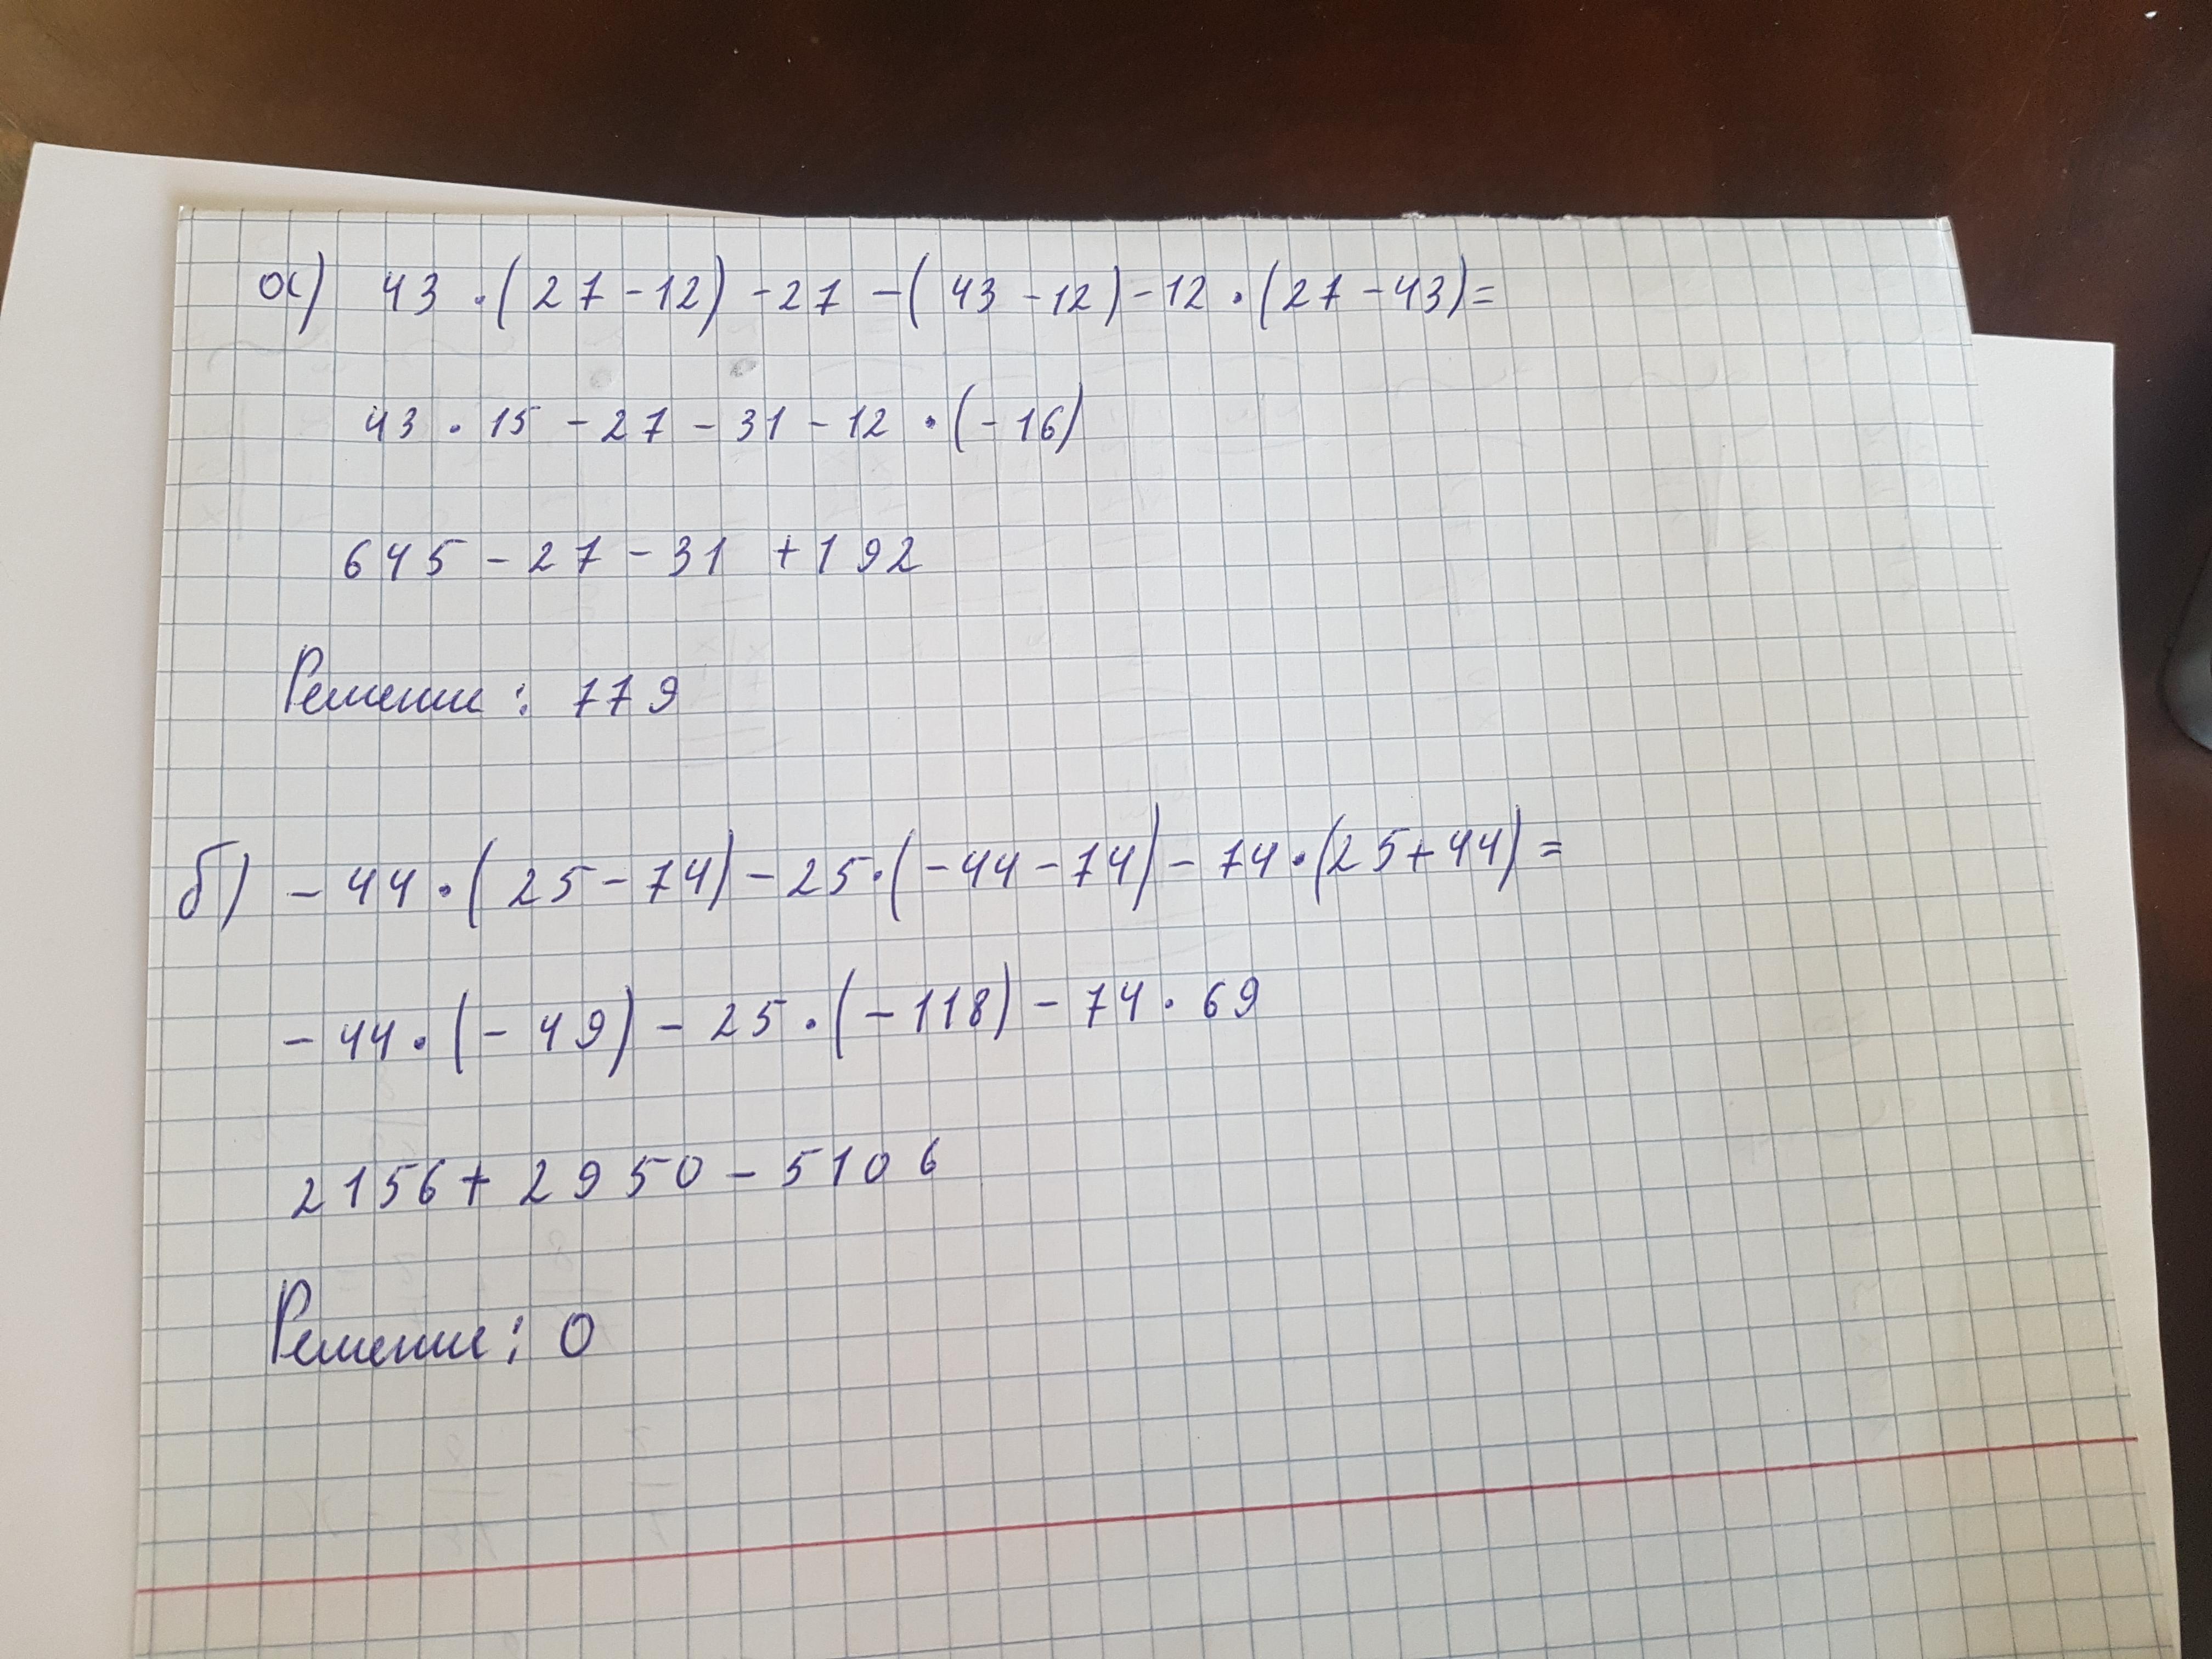 а) 43 · (27 - 12) - 27 - (43 - 12) - 12 · (27 - 43) =
43 · 15 - 27 - 31 - 12 · (- 16)
645 - 27 - 31 + 192
Решение : 779
б) - 44 · (25 - 74) - 25 · (- 44 - 74) - 74 · (25 + 44) =
- 44 · (- 49) - 25 · (- 118) - 74 · 69
2156 + 2950 - 5106
Решение : 0